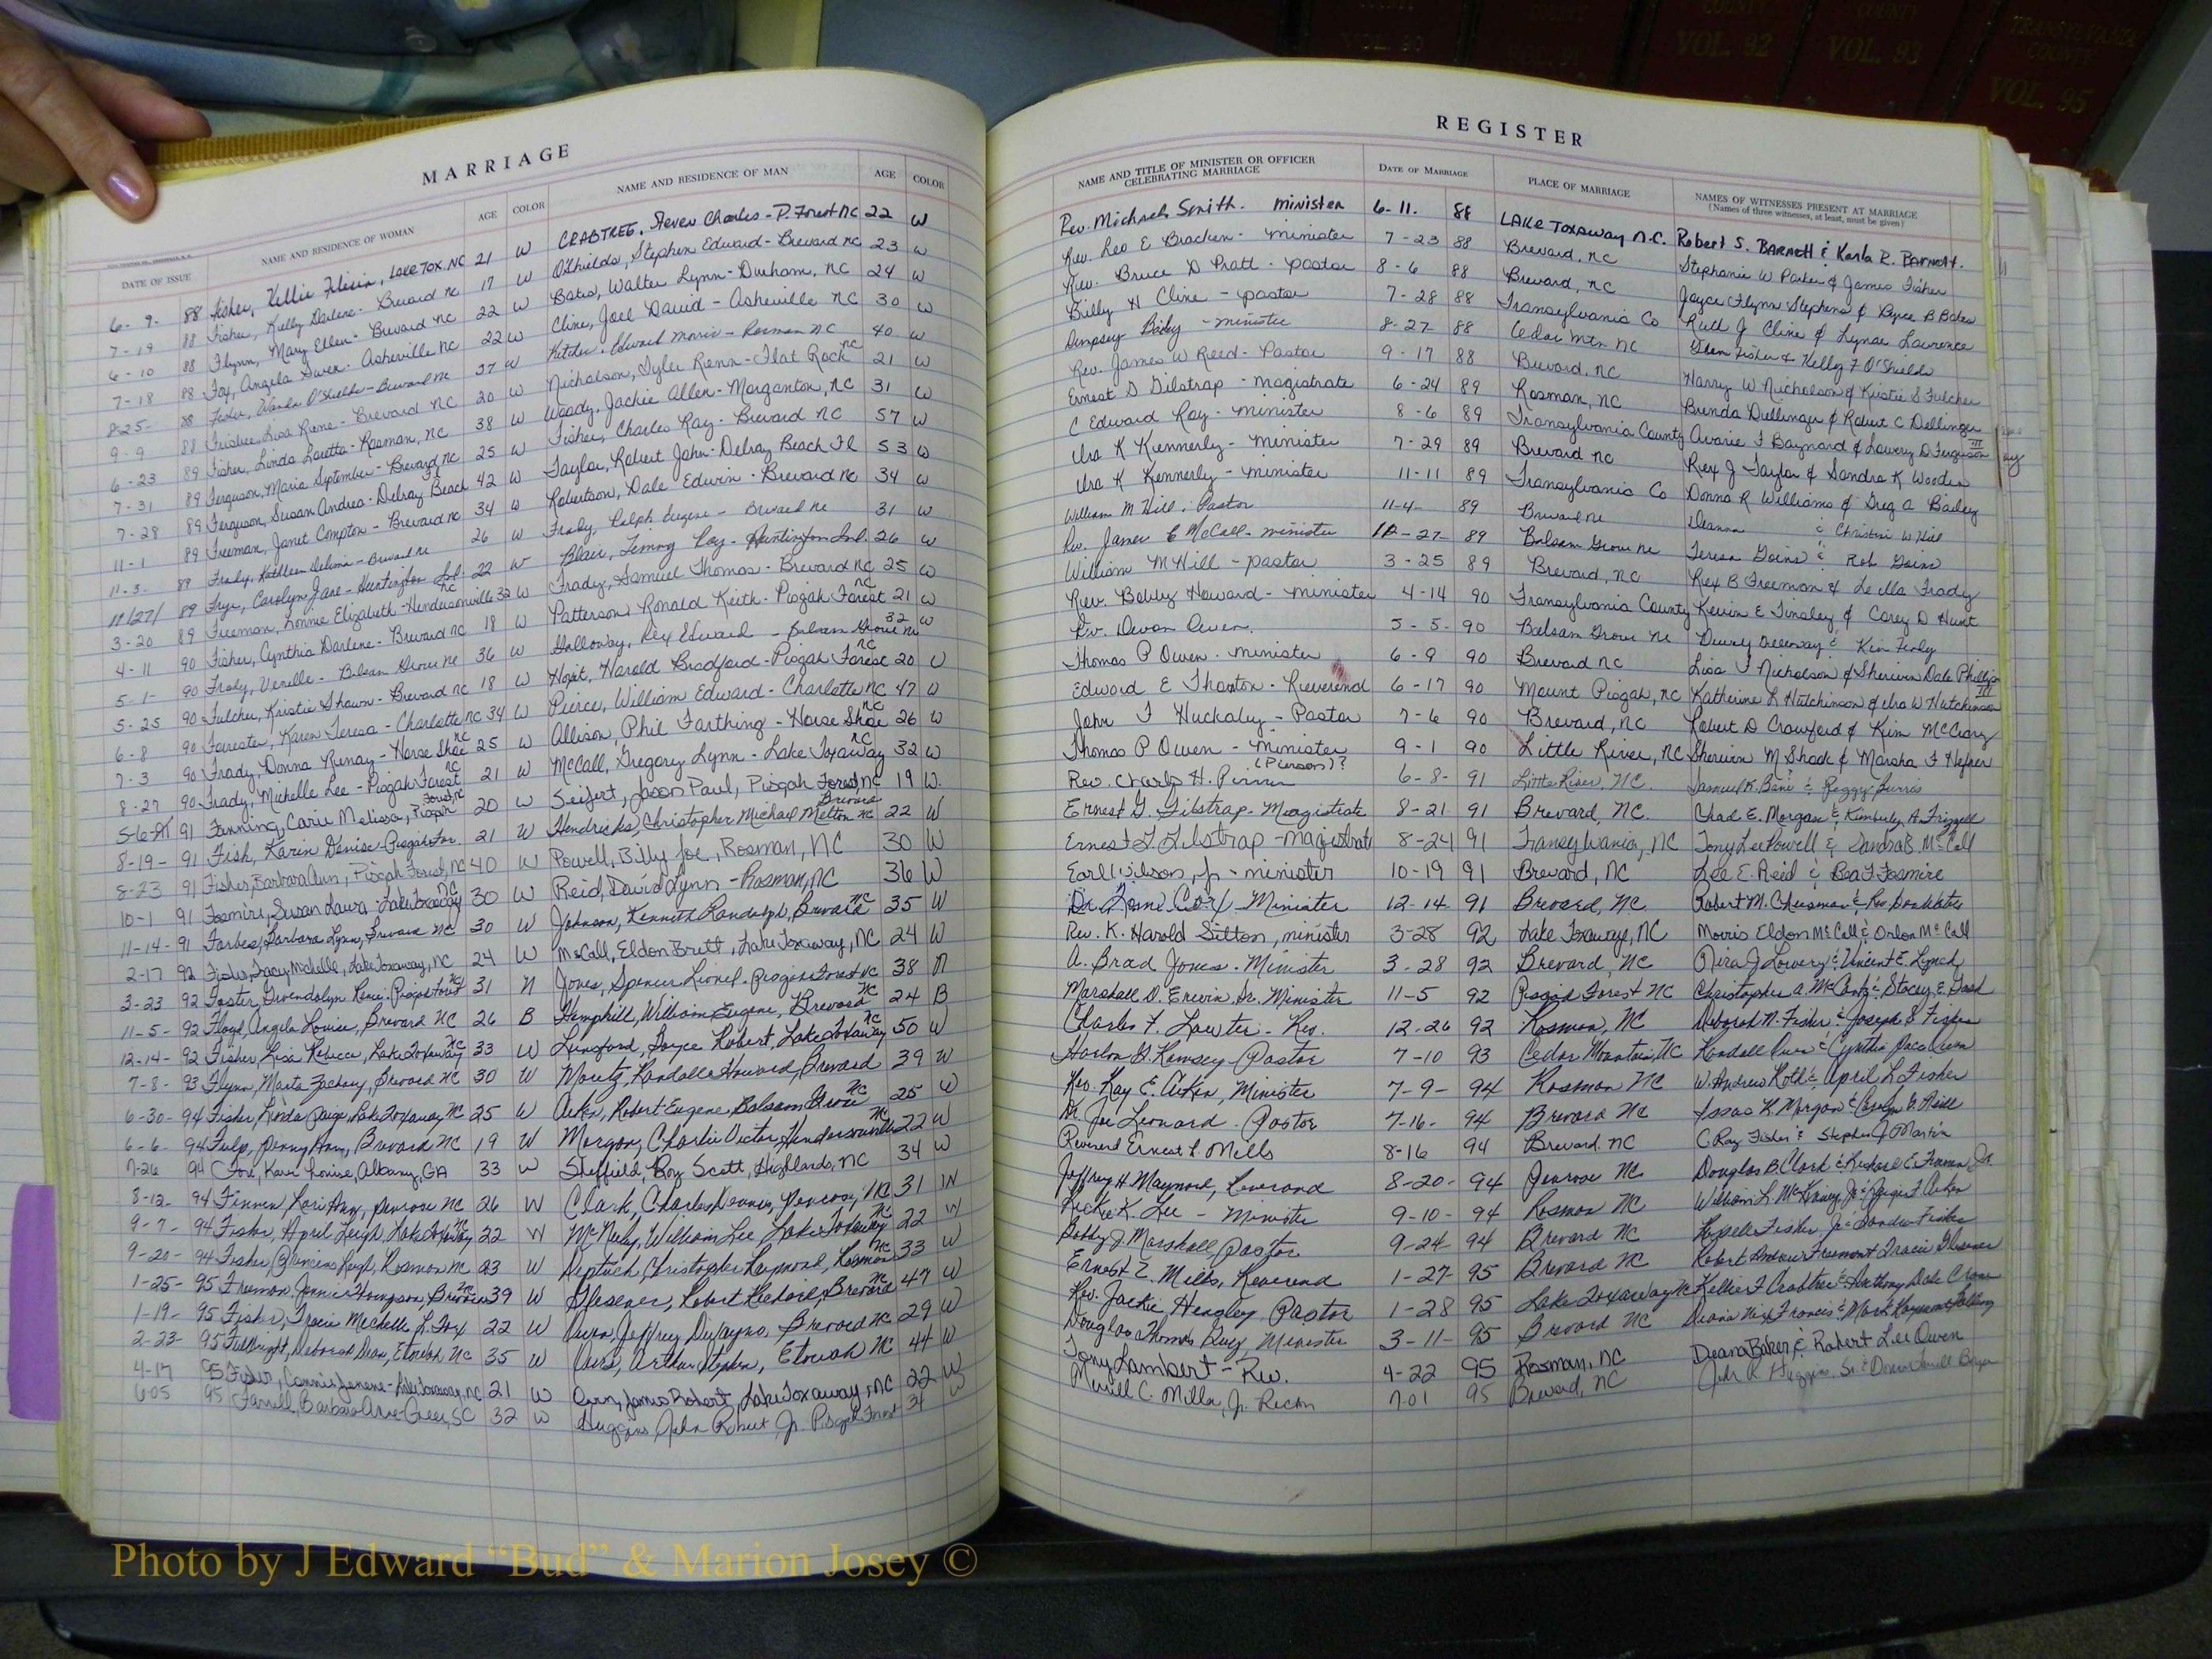 COUNTY
COUNTY
TRANSYLVANIA
COUNTY
VOL. 92
VOL. 93
VOL. 95
MARRIAGE
DATE OF ISSUE NAME AND RESIDENCE OF WOMAN AGE COLOR NAME AND RESIDENCE OF MAN AGE COLOR
6-9- 88 Fisher, Kellie LAKE TOX. NC 21 W CRABTREE, Steven Charles - P. Forest NC 22 W
7-19 88 Fisher, Kelly Darlene - Brevard NC 17 W O'Shields, Stephen Edward - Brevard NC 23 W
6-10 88 Flynn, Mary Ellen - Brevard NC 22 W Bates, Walter Lynn - Durham, NC 24 W
7-18 88 Fox, Angela Gwen - Asheville NC 22 W Cline, Joel David - Asheville NC 30 W
8-25- 88 Fisher, Wanda O'Shields - Brevard NC 37 W Edward Morris - Rosman NC 40 W
9-9 88 Frisbee, Lisa Rene - Brevard NC 20 W Nicholson, Tyler Renn - Flat Rock NC 21 W
6-23 89 Fisher, Linda Loretta - Rosman, NC 38 W Woody, Jackie Allen - Morganton, NC 31 W
7-31 89 Ferguson, Maria September - Brevard NC 25 W Fisher, Charles Ray - Brevard NC 57 W
7-28 89 Ferguson, Susan Andrea - Delray Beach 42 W Taylor, Robert John - Delray Beach Fl 53 W
11-1 89 Freeman, Janet Compton - Brevard NC 34 W Robertson, Dale Edwin - Brevard NC 34 W
11-3- 89 Frady, Kathleen - Brevard NC 26 W Frady, Ralph Eugene - Brevard NC 31 W
11/27/ 89 Frye, Carolyn Jane - Huntington Ind. 22 W Blair, Timmy Roy - Huntington Ind. 26 W
3-20 89 Freeman, Lonnie Elizabeth - Hendersonville NC 32 W Frady, Samuel Thomas - Brevard NC 25 W
4-11 90 Fisher, Cynthia Darlene - Brevard NC 18 W Patterson Ronald Keith - Pisgah Forest NC 21 W
5-1- 90 Frady, Verelle - Balsam Grove NC 36 W Galloway, Rex Edward - Balsam Grove NC 32 W
5-25 90 Fulcher, Kristie Shawn - Brevard NC 18 W Hoxit, Harold Bradford - Pisgah Forest NC 20 W
6-8 90 Forrester, Karen Teresa - Charlotte NC 34 W Pierce, William Edward - Charlotte NC 47 W
7-3 90 Frady, Donna Renay - Horse Shoe NC 25 W Allison, Phil Farthing - Horse Shoe NC 26 W
8-27 90 Frady, Michelle Lee - Pisgah Forest NC 21 W McCall, Gregory Lynn - Lake Toxaway NC 32 W
5-6- 91 Fanning, Carie Melissa, Pisgah Forest, NC 20 W Seifert, Jason Paul, Pisgah Forest, NC 19 W.
8-19- 91 Fish, Karin Denise - Pisgah For. 21 W Hendricks, Christopher Michael Melton Brevard NC 22 W
8-23 91 Fisher, Barbara Ann, Pisgah Forest, NC 40 W Powell, Billy Joe, Rosman, NC 30 W
10-1 91 Fosmire, Susan Laura - Lake Toxaway NC 30 W Reid, David Lynn - Rosman, NC 36 W
11-14-91 Forbes, Barbara Lynn, Brevard NC 30 W Johnson, Kenneth Randolph, Brevard NC 35 W
2-17 92 Fisher, Tracy Michelle, Lake Toxaway, NC 24 W McCall, Eldon Brett, Lake Toxaway, NC 24 W
3-23 92 Foster, Gwendolyn Renee - Pisgah Forest NC 31 N Jones, Spencer Lionel - Pisgah Forest NC 38 N
11-5- 92 Floyd, Angela Louise, Brevard NC 26 B Hemphill, William Eugene, Brevard NC 24 B
12-14- 92 Fisher, Lisa Rebecca, Lake Toxaway NC 33 W Lunsford, Boyce Robert, Lake Toxaway NC 50 W
7-8- 93 Flynn, Marta Zachary, Brevard NC 30 W Moretz, Randall Howard, Brevard 39 W
6-30- 94 Fisher, Linda Paige, Lake Toxaway NC 25 W Aiken, Robert Eugene, Balsam Grove NC 25 W
6-6 94 Fulp, Penny Ann, Brevard NC 19 W Morgan, Charlie Victor, Hendersonville NC 22 W
7-26 94 Fore, Kari Louise, Albany, GA 33 W Sheffield, Roy Scott, Highlands, NC 34 W
8-12- 94 Finnen Kari Amy, Penrose NC 26 W Clark, Charles Dennis, Penrose, NC 31 W
9-7- 94 Fisher, April Leigh Lake Toxaway NC 22 W McNeely, William Lee Lake Toxaway NC 22 W
9-20- 94 Fisher, Leigh, Rosman NC 23 W Christopher Raymond, Rosman NC 33 W
1-25- 95 Freeman, Jennie Thompson, Brevard NC 39 W Glesener, Robert Richard, Brevard NC 47 W
1-19- 95 Fisher, Tracie Michelle L. Tox 22 W Owen, Jeffrey DeWayne, Brevard NC 29 W
2-23- 95 Fulbright, Deborah Dean, Etowah NC 35 W Arthur Stephen, Etowah NC 44 W
4-17 95 Fisher, Connie Jenene - Lake Toxaway, NC 21 W Owen, James Robert, Lake Toxaway, NC 22 W
6-05 95 Farrell, Barbara Anne - Greer, SC 32 W Huggins John Robert Jr. Pisgah Forest 31 W
REGISTER
NAME AND TITLE OF MINISTER OR OFFICER CELEBRATING MARRIAGE DATE OF MARRIAGE PLACE OF MARRIAGE NAMES OF WITNESSES PRESENT AT MARRIAGE
(Names of three witnesses, at least, must be given)
Rev. Michael Smith. minister 6-11. 88 LAKE TOXAWAY N.C. Robert S. BARNETT & Karla R. BARNETT.
Rev. Leo E Bracken - minister 7-23 88 Brevard, NC Stephanie W Parker & James Fisher
Rev. Bruce D Pratt - pastor 8-6 88 Brevard, NC Joyce Flynn Stephens & Bates
Billy H Cline - pastor 7-28 88 Transylvania Co Ruth J Cline & Lynae Lawrence
Dempsey Bailey - minister 8-27 88 Cedar Mtn NC Glen Fisher & Kelly F O'Shields
Rev. James W Reed - Pastor 9-17 88 Brevard, NC Harry W Nicholson & Kristie S Fulcher
Ernest G Gilstrap - magistrate 6-24 89 Rosman, NC Brenda Dellinger & Robert C Dellinger
C Edward Roy - minister 8-6 89 Transylvania County Avarie F Baynard & Lowery D Ferguson III
Ira K Kennerly - minister 7-29 89 Brevard NC Rex J Taylor & Sandra K Wooden
Ira K Kennerly - minister 11-11 89 Transylvania Co Donna R Williams & Greg A Bailey
William M Hill - Pastor 11-4- 89 Brevard NC Deanna & Christine W Hill
Rev. James E McCall - minister 11-27- 89 Balsam Grove NC Teresa Goins & Rob Goins
William M Hill - pastor 3-25 89 Brevard, NC Rex B Freeman & Leella Frady
Rev. Bobby Howard - minister 4-14 90 Transylvania County Kevin E Tinsley & Carey D Hunt
Rev. Devon Owen. 5-5- 90 Balsam Grove NC Dewey Galloway & Kim Frady
Thomas P Owen - minister 6-9 90 Brevard NC Lisa J Nicholson & Sherwin Dale Phillips III
Edward E Thornton - Reverend 6-17 90 Mount Pisgah, NC Katherine L Hutchinson & Ira W Hutchinson
John F Huckaby - Pastor 7-6 90 Brevard, NC Robert D Crawford & Kim McCrary
Thomas P Owen - minister 9-1 90 Little River, NC Sherwin M Shook & Marsha F Hefner
(Pierson)?
Rev. Charles H. 6-8- 91 Little River, NC. Samuel K. & Peggy Burris
Ernest G. Gilstrap - Magistrate 8-21 91 Brevard, NC. Chad E. Morgan & Kimberly A. Frizzell
Ernest G. Gilstrap - magistrate 8-24 91 Transylvania, NC Tony Lee Powell & Sandra B. McCall
Earl Wilson, Jr - minister 10-19 91 Brevard, NC Lee E. Reid & Bea F Fosmire
Dr. Minister 12-14 91 Brevard, NC Robert M. Cheesman &
Rev. K. Harold Sitton, minister 3-28 92 Lake Toxaway, NC Morris Eldon McCall & Orlon McCall
A. Brad Jones - Minister 3-28 92 Brevard, NC Lowery & Vincent E. Lynch
Marshall D. Erwin, Sr. Minister 11-5 92 Pisgah Forest NC Christopher A. & Stacey E.
Charles F. Lawter - Rev. 12-26 92 Rosman, NC Deborah N. Fisher & Joseph S Fisher
Harlon G. Ramsey - Pastor 7-10 93 Cedar Mountain, NC Randall Owen & Cynthia
Rev. Ray E. Aiken, Minister 7-9- 94 Rosman NC W. Andrew Roth & April L Fisher
Dr. Joe Leonard - Pastor 7-16- 94 Brevard NC Issac K Morgan & Carolyn
Reverend Ernest L. Mills 8-16 94 Brevard NC C Ray Fisher & Stephen J Martin
Jeffrey H Maynard, Reverand 8-20- 94 Penrose NC Douglas B. Clark & Richard E. Finnen Jr.
Rickie K. Lee - Minister 9-10- 94 Rosman NC William L. McKinney, Jr & Paige F Aiken
Bobby J Marshall, Pastor 9-24- 94 Brevard NC Fisher Jr & Sandra Fisher
Ernest L. Mills, Reverend 1-27- 95 Brevard NC Robert Andrew Freeman & Tracie Glesener
Rev. Jackie Hensley, Pastor 1-28 95 Lake Toxaway NC Kellie F Crabtree & Anthony Dale Crane
Douglas Thomas Minister 3-11- 95 Brevard NC Deana Francis & Mark
Tony Lambert - Rev. 4-22 95 Rosman, NC Deana Baker & Robert Lee Owen
Merrill C. Miller, Jr. 7-01 95 Brevard, NC John R Huggins, Sr. &
Photo by J Edward “Bud” & Marion Josey ©